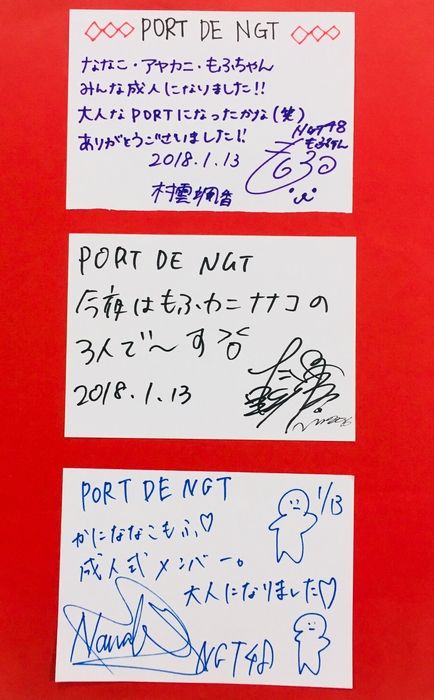 PORT DE NGT
ななこ・アヤカニ・もふちゃん
みんな成人になりました!!
大人なPORTになったかな(笑)
ありがとうございました!!
2018.1.13
NGT48
もふちゃん
村雲颯香
PORT DE NGT
今夜はもふカニナナコの
3人で〜す
2018.1.13
PORT DE NGT
1/13
かにななこもふ♡
成人式メンバー。
大人になりました♡
NGT48